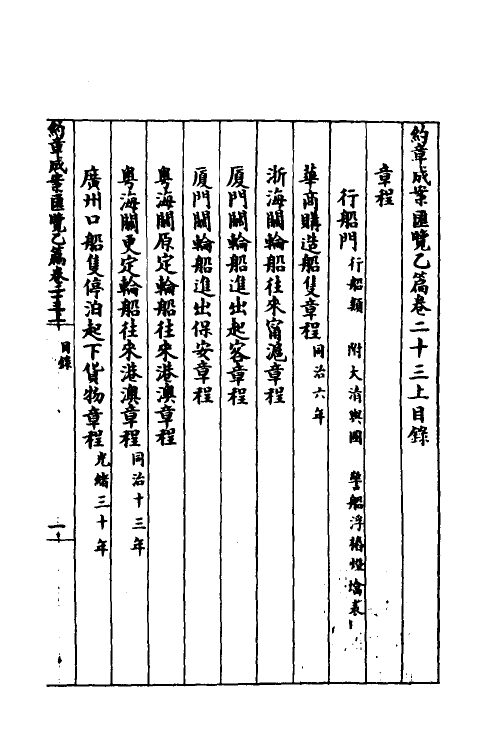 約章成案匯覽乙篇卷二十三上目錄
章程
行船門 行船類 附大清輿圖 警船浮樁燈塔表
華商購造船隻章程 同治六年
浙海關輪船往來甯滬章程
廈門關輪船進出起客章程
廈門關輪船進出保安章程
粵海關原定輪船往來港澳章程
粵海關更定輪船往來港澳章程 同治十三年
廣州口船隻停泊起下貨物章程 光緒三十年
約章成案匯覽乙篇卷二十三上 目錄 一